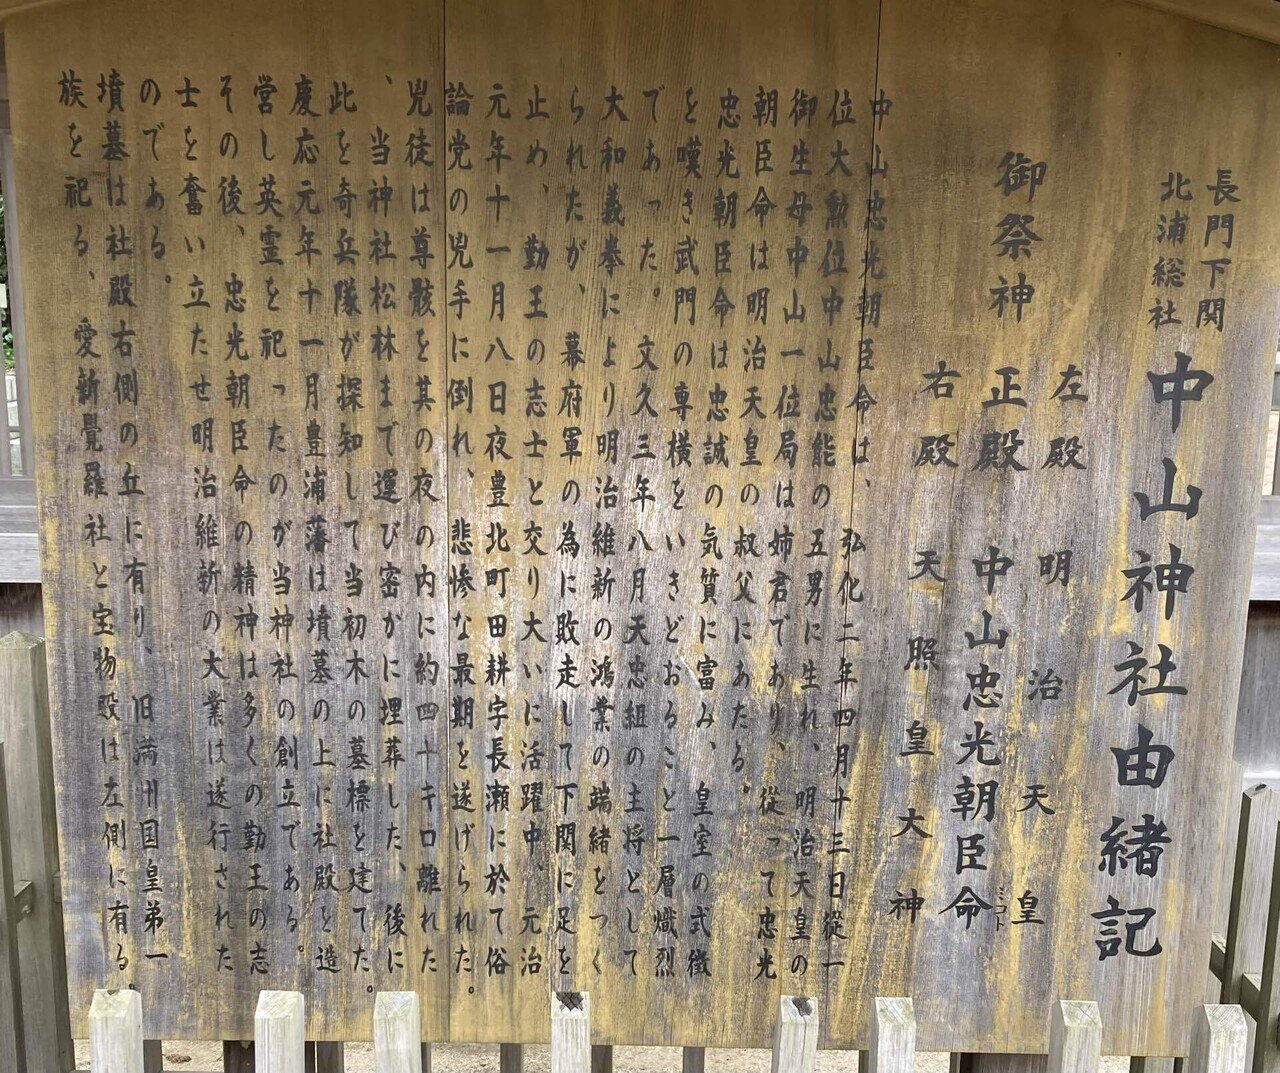 長門下関
北浦総社
中山神社由緒記
御祭神
左殿 明治天皇
正殿 中山忠光朝臣命
ミコト
右殿 天照皇大神
中山忠光朝臣命は、弘化二年四月十三日從一
位大勲位中山忠能の五男に生れ、明治天皇の
御生母中山一位局は姉君であり、從って忠光
朝臣命は明治天皇の叔父にあたる。
忠光朝臣命は忠誠の気質に富み、皇室の式微
を嘆き武門の専横をいきどおること一層熾烈
であった。文久三年八月天忠組の主将として
大和義拳により明治維新の鴻業の端緒をつく
られたが、幕府軍の為に敗走して下関に足を
止め、勤王の志士と交り大いに活躍中、元治
元年十一月八日夜豊北町田耕字長瀬に於て俗
論党の兇手に倒れ、悲惨な最期を遂げられた。
兇徒は尊骸を其の夜の内に約四十キロ離れた
、当神社松林まで運び密かに埋葬した、後に
此を奇兵隊が探知して当初木の墓標を建てた。
慶応元年十一月豊浦藩は墳墓の上に社殿を造
営し英霊を祀ったのが当神社の創立である。
その後、忠光朝臣命の精神は多くの勤王の志
士を奮い立たせ明治維新の大業は遂行された
のである。
墳墓は社殿右側の丘に有り、旧満州国皇弟一
族を祀る、愛新覺羅社と宝物殿は左側に有る。